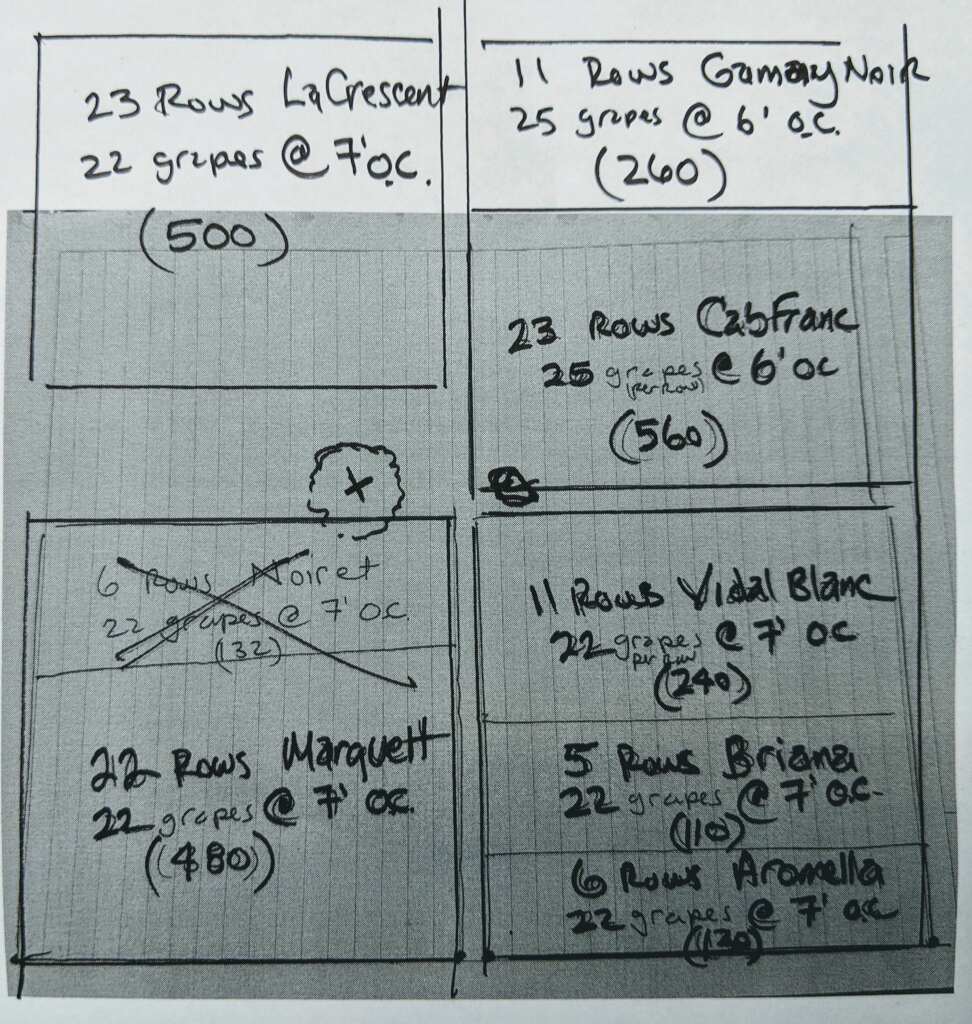 23 Rows LaCrescent
22 grapes @ 7' O.C.
(500)
11 Rows Gamay Noir
25 grapes @ 6' O.C.
(260)
23 Rows CabFranc
25 grapes @ 6' OC
(per Row)
(560)
6 Rows Noiret
22 grapes @ 7' O.C.
(132)
22 Rows Marquett
22 grapes @ 7' O.C.
(480)
11 Rows Vidal Blanc
22 grapes @ 7' OC
per row
(240)
5 Rows Briana
22 grapes @ 7' O.C.
(110)
6 Rows Aromella
22 grapes @ 7' O.C.
(120)